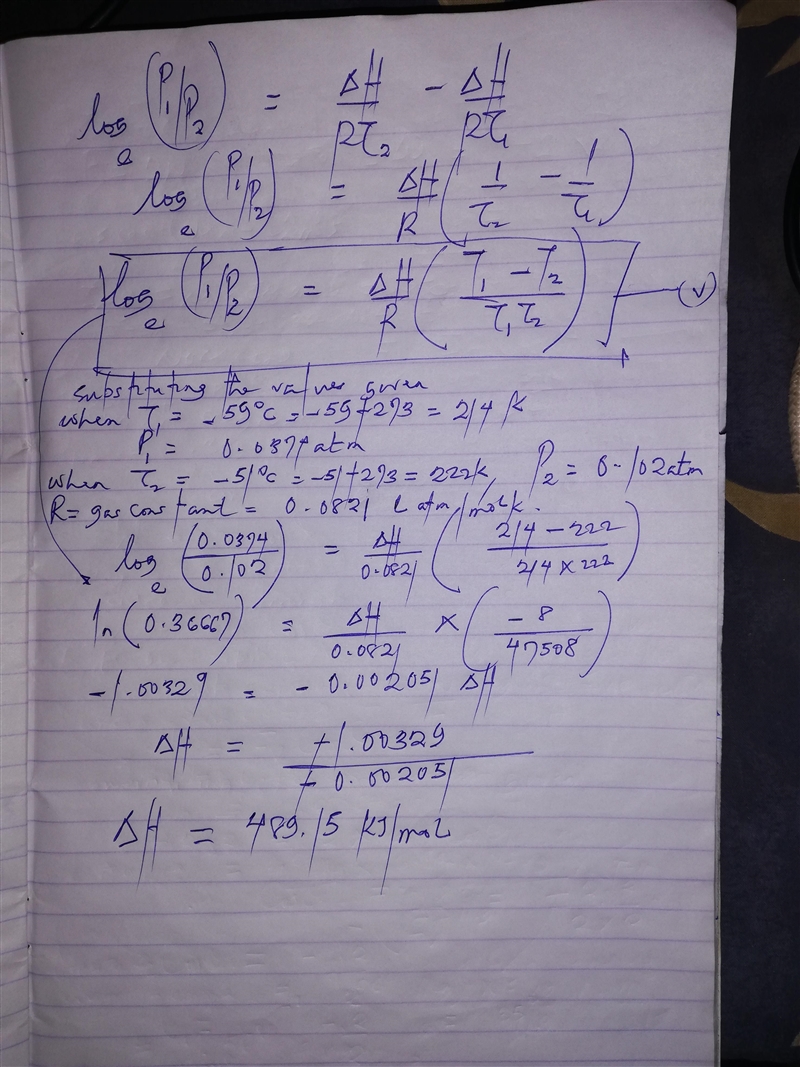 log_e (P₁/P₂) = ΔH/RT₂ - ΔH/RT₁
log_e (P₁/P₂) = ΔH/R (1/T₂ - 1/T₁)
log_e (P₁/P₂) = ΔH/R ((T₁ - T₂)/(T₁T₂)) — (v)
substituting the values given
when T₁ = -59°C = -59+273 = 214 K
P₁ = 0.0374 atm
when T₂ = -51°C = -51+273 = 222K, P₂ = 0.102atm
R = gas constant = 0.0821 L atm/mol K.
log_e (0.0374/0.102) = ΔH/0.0821 ((214 - 222)/(214 × 222))
ln (0.36667) = ΔH/0.0821 × (-8/47508)
-1.00329 = -0.002051 ΔH
ΔH = +1.00329/+0.002051
ΔH = 489.15 KJ/mol